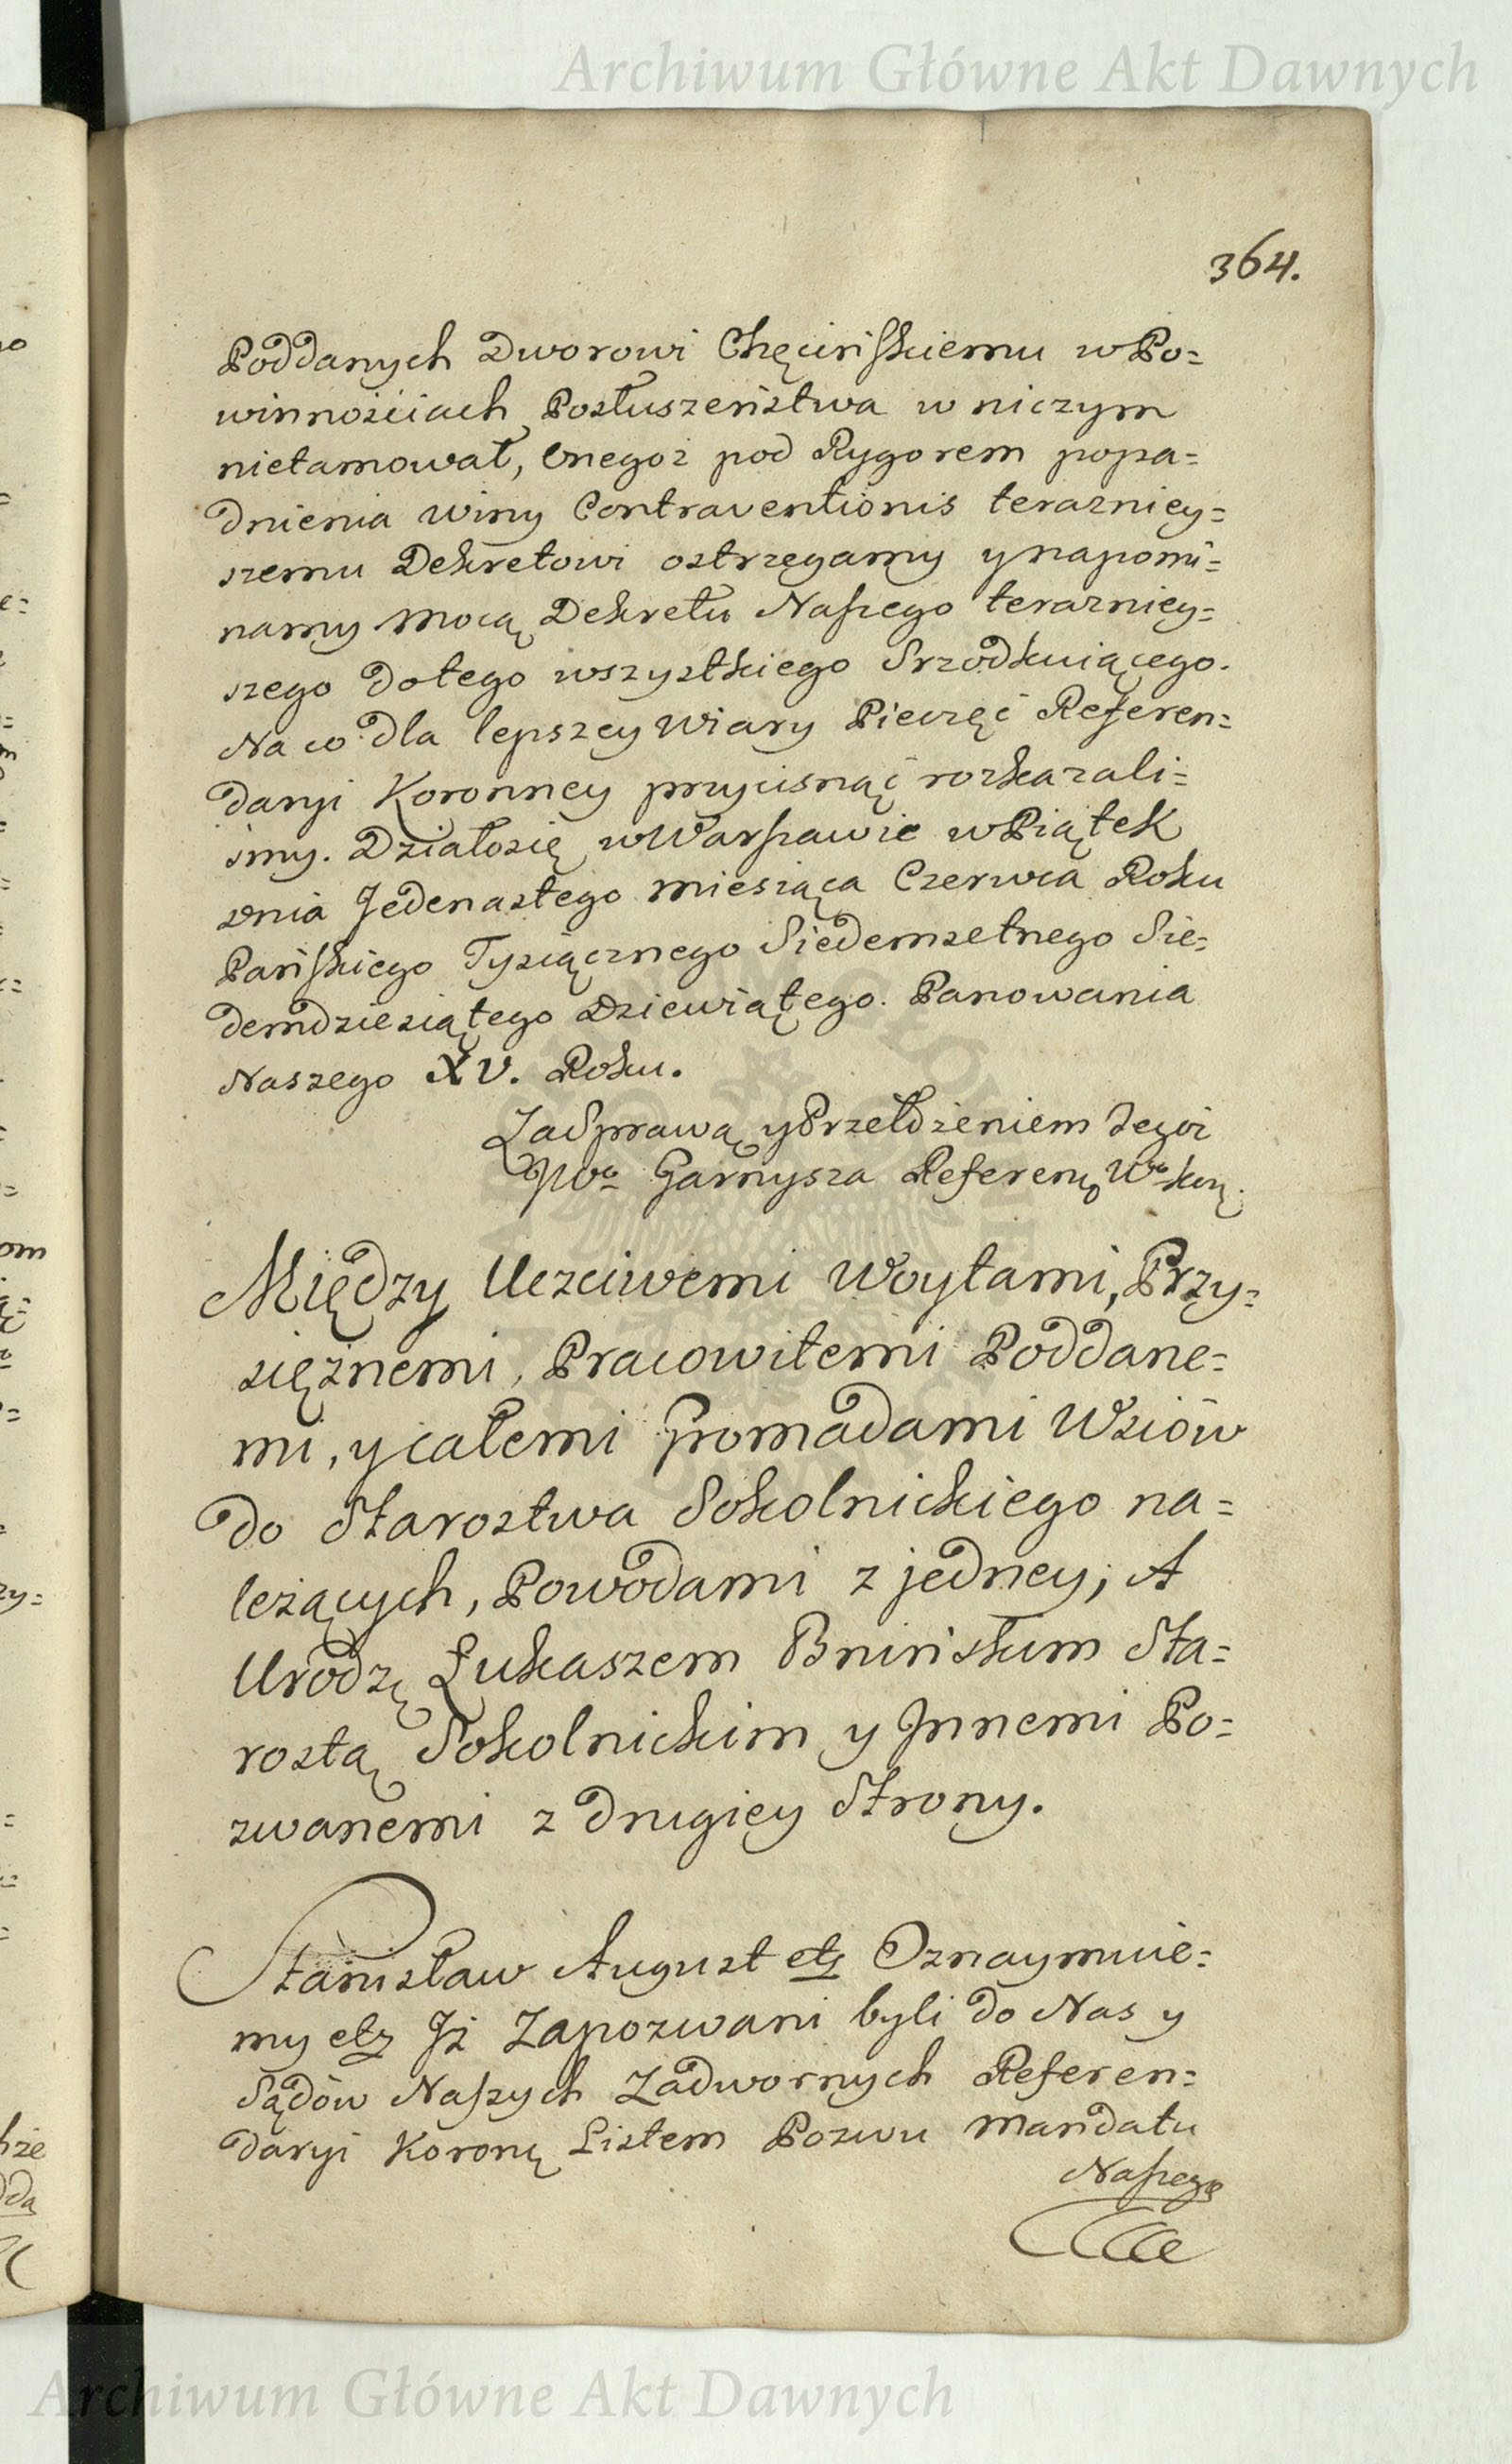 Archiwum Główne Akt Dawnych
364.
Poddanych Dworowi Chęcińskiemu w Po=
winnościach Posłuszeństwa w niczym
nietamował, Onegoż pod Rygorem popa=
dnienia winy Contraventionis teraźniey=
szemu Dekretowi ostrzegamy y napomi=
namy Mocą Dekretu Naszego teraźniey=
szego dotego wszystkiego Srzodkuiącego.
Na co dla lepszey Wiary Pieczęć Referen=
daryi Koronney przycisnąć rozkazali=
śmy. Działosię w Warszawie w Piątek
dnia Jedenastego miesiąca Czerwca Roku
Pańskiego Tysiącznego Siedemsetnego Sie=
demdziesiątego Dziewiątego. Panowania
Naszego XV. Roku.
Za Sprawą y Przełożeniem
JWo Garnysza Referen
Między Uczciwemi Woytami, Przy=
siężnemi, Pracowitemi Poddane=
mi, y całemi Gromadami Wsiów
do Starostwa Sokolnickiego na=
leżących, Powodami z jedney; A
Urodz Łukaszem Bnińskim Sta=
rostą Sokolnickim y Jnnemi Po=
zwanemi z drugiey Strony.
Stanisław August etz Oznaymuie=
my etz Jż Zapozwani byli do Nas y
Sądów Naszych Zadwornych Referen=
daryi Koron Listem Pozwu Mandatu
Naszego
Archiwum Główne Akt Dawnych